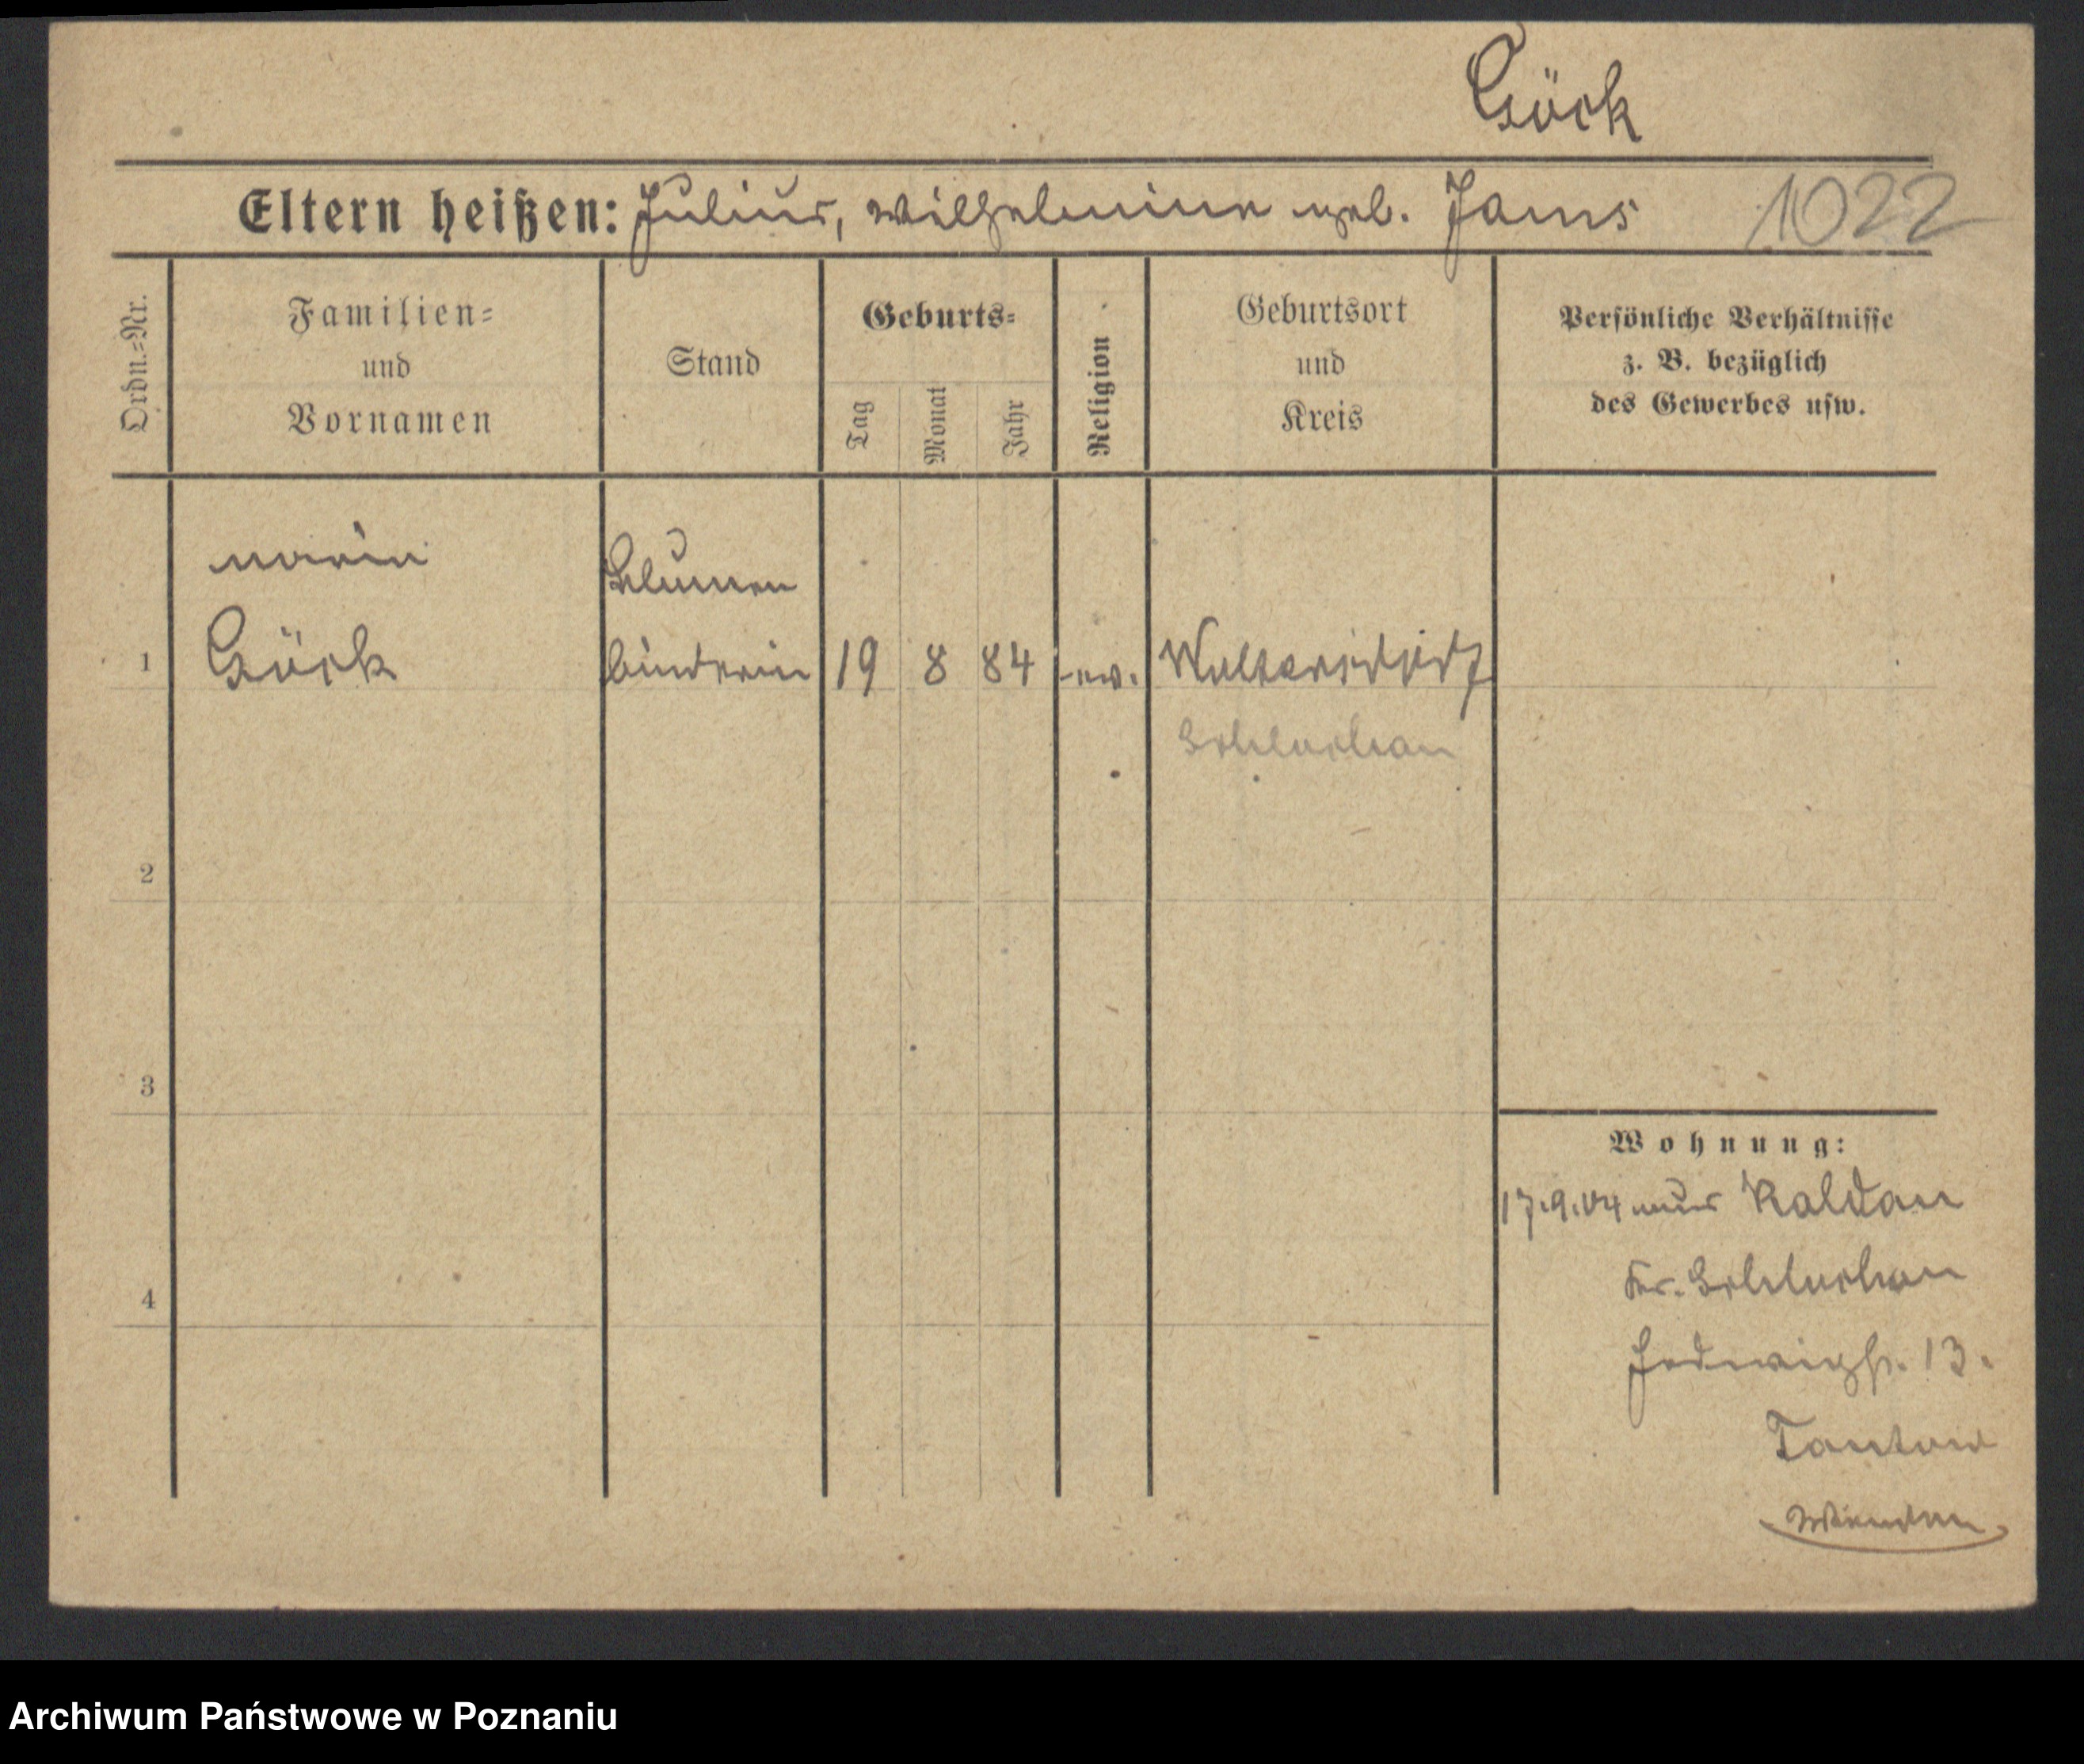 Göck
Eltern heißen: Julius, Wilhelmine geb. Jams 1022
Ordn.-Nr.
Familien-
und
Vornamen
Stand
Geburts-
Tag
Monat
Jahr
Religion
Geburtsort
und
Kreis
Persönliche Verhältnisse
z. B. bezüglich
des Gewerbes usw.
Marie
Blumen
1 Göck binderin 19 8 84 ev.
Schlochau
2
3
Wohnung:
17.9.04 aus Kaldau
4
Kr. Schlochau
Hedwigstr. 13.
Tantow
Archiwum Państwowe w Poznaniu